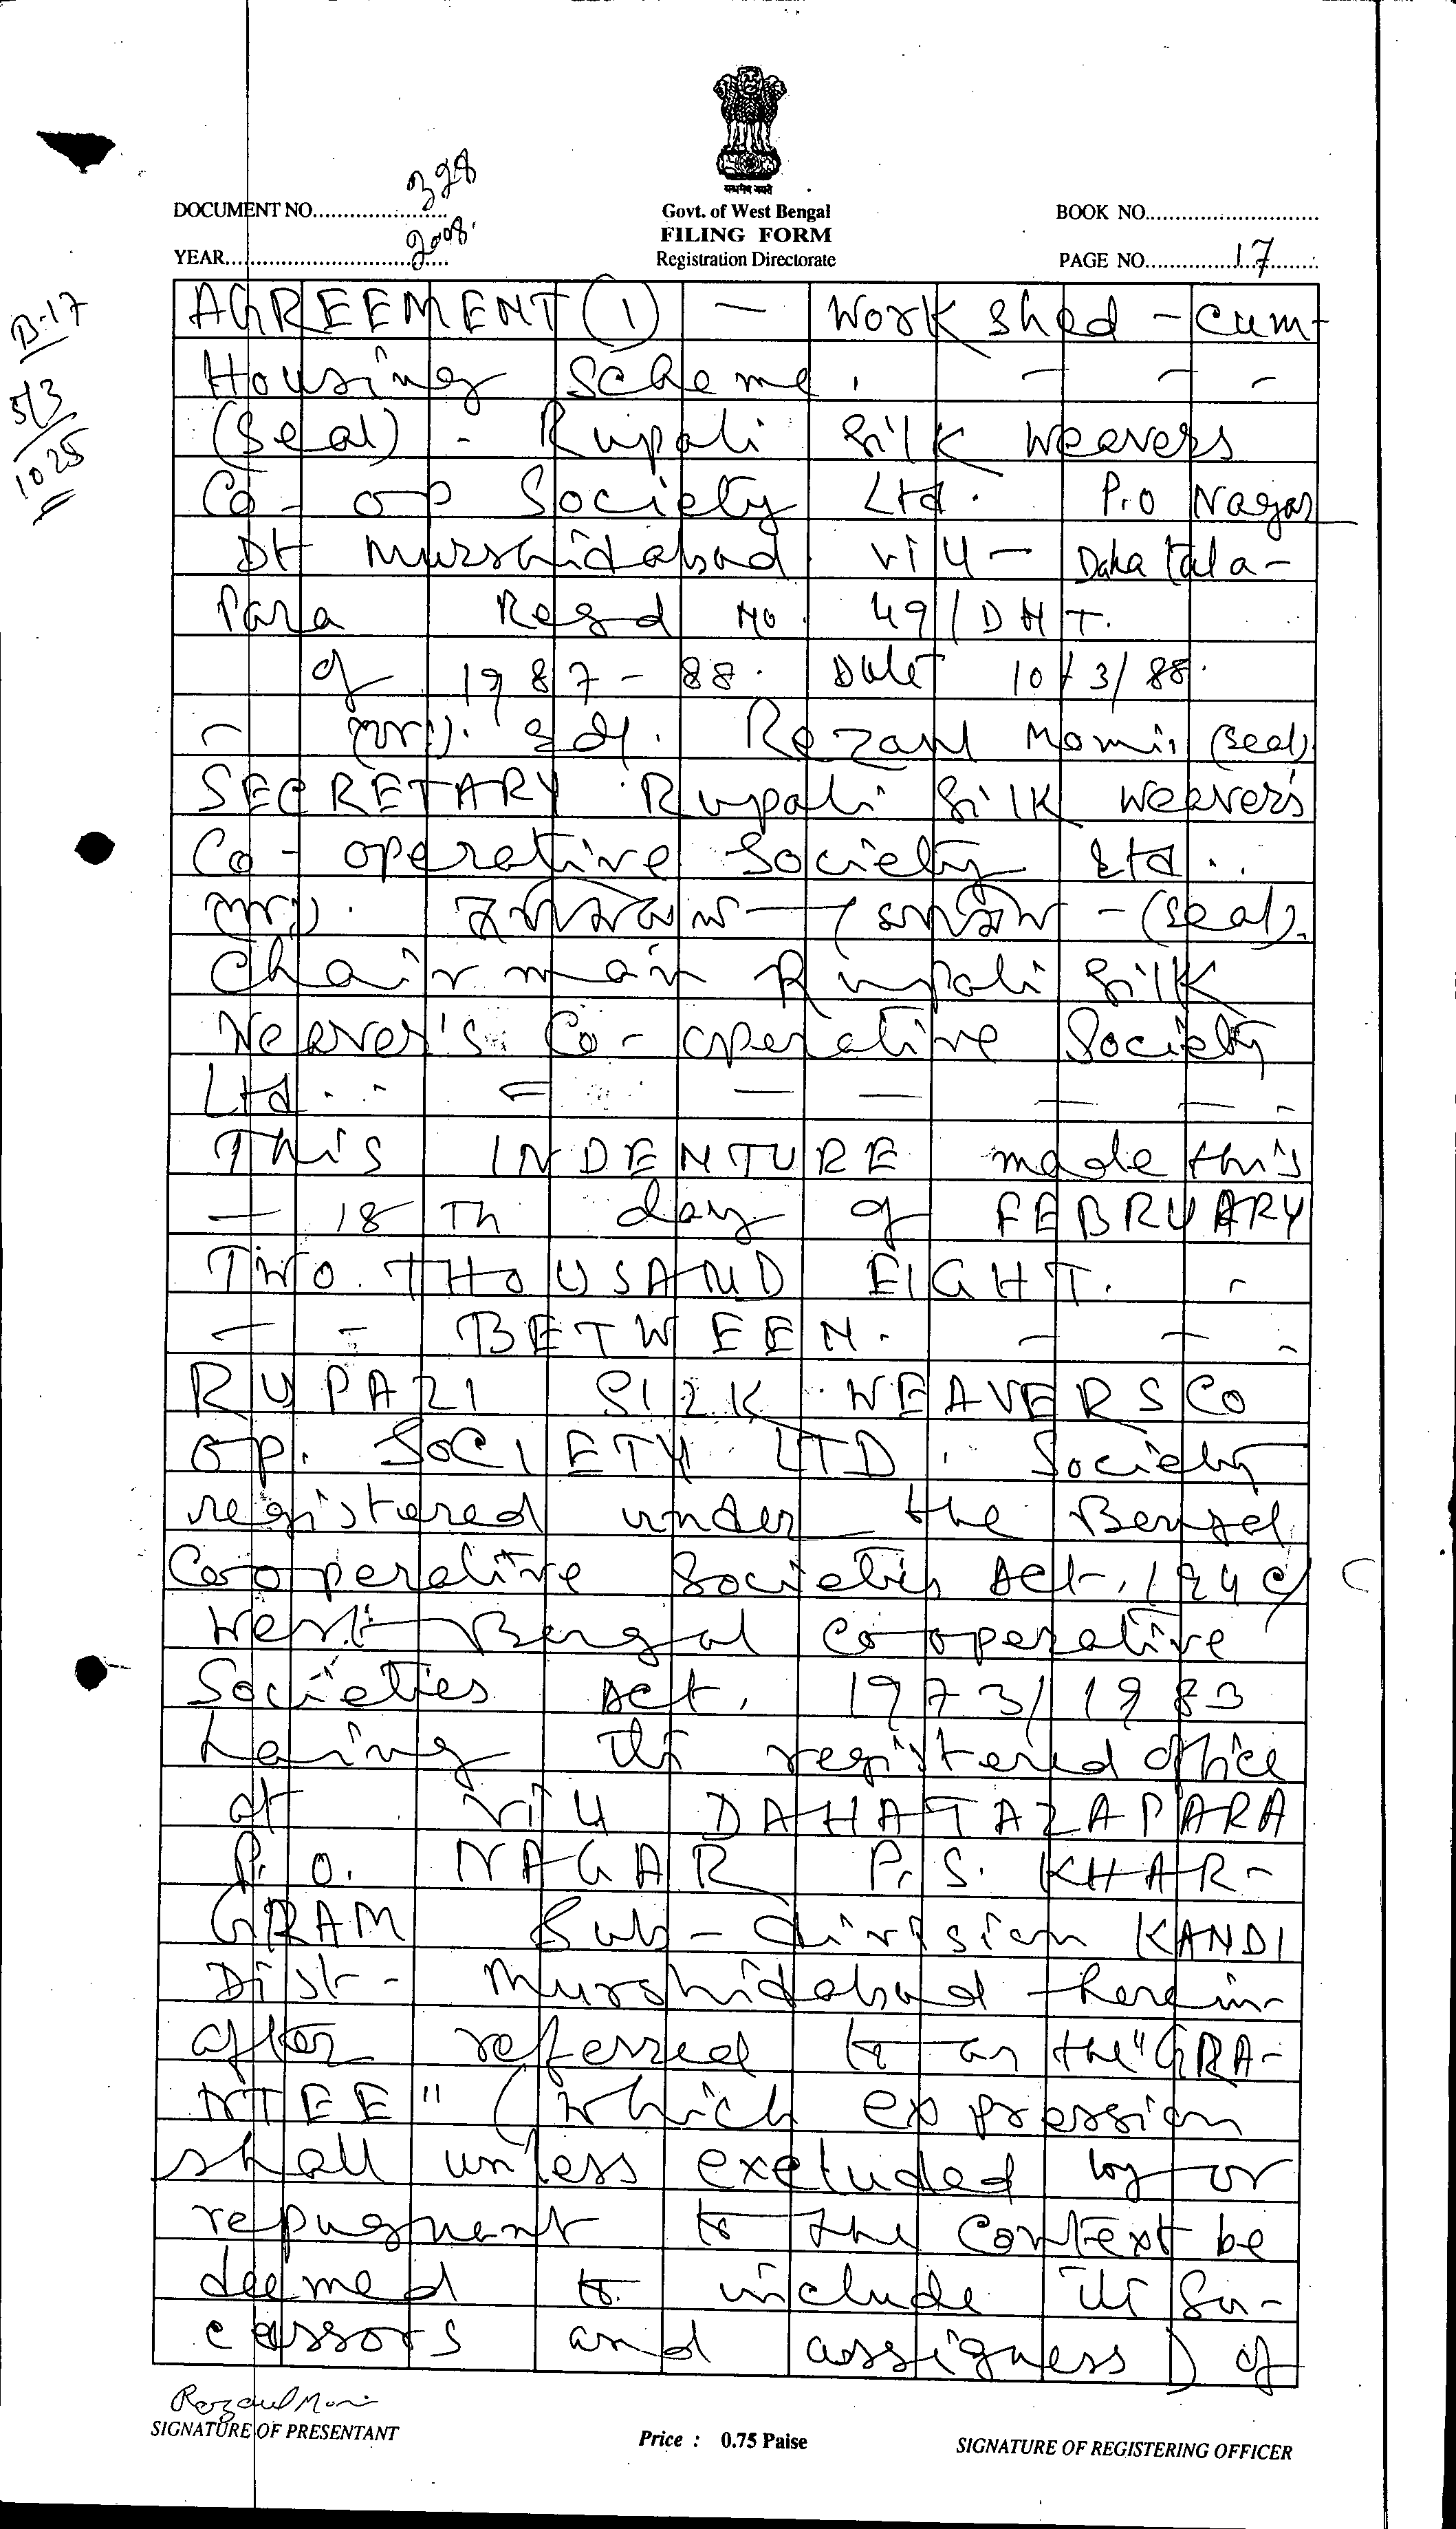 DOCUMENT NO. 398
YEAR 2008.
सत्यमेव जयते
Govt. of West Bengal
FILING FORM
Registration Directorate
BOOK NO.
PAGE NO. 17
B-17
5/3
1025
AGREEMENT (1) — Work Shed - Cum-
Housing Scheme. - - -
(Seal) - Rupali Silk Weavers
Co-op Society Ltd. P.O Nagar
Dt Murshidabad. Vill - Dahatala-
Para Regd No. 49/DHT.
of 1987-88. Date 10/3/88.
- Sd/. Rezaul Momin (Seal)
SECRETARY Rupali Silk Weaver's
Co-operative Society Ltd.
- (Seal).
Chairman Rupali Silk
Weaver's Co-operative Society
Ltd. - = - - - - -
This INDENTURE made this
— 18Th day of FEBRUARY
TWO THOUSAND EIGHT. -
- - BETWEEN. - - -
RUPALI SILK WEAVERS CO
OP. SOCIETY LTD. Society
registered under the Bengal
Co-operative Societies Act, 1940/
West Bengal Co-operative
Societies Act, 1973/1983
having its registered office
at Vill DAHATALAPARA
P.O. NAGAR P.S. KHAR-
GRAM Sub-division KANDI
Dist- Murshidabad herein-
after referred to as the "GRA-
NTEE" (which expression
shall unless excluded by or
repugnant to the context be
deemed to include its Su-
cessors and assigness) of
Rezaul Momin
SIGNATURE OF PRESENTANT
Price : 0.75 Paise
SIGNATURE OF REGISTERING OFFICER